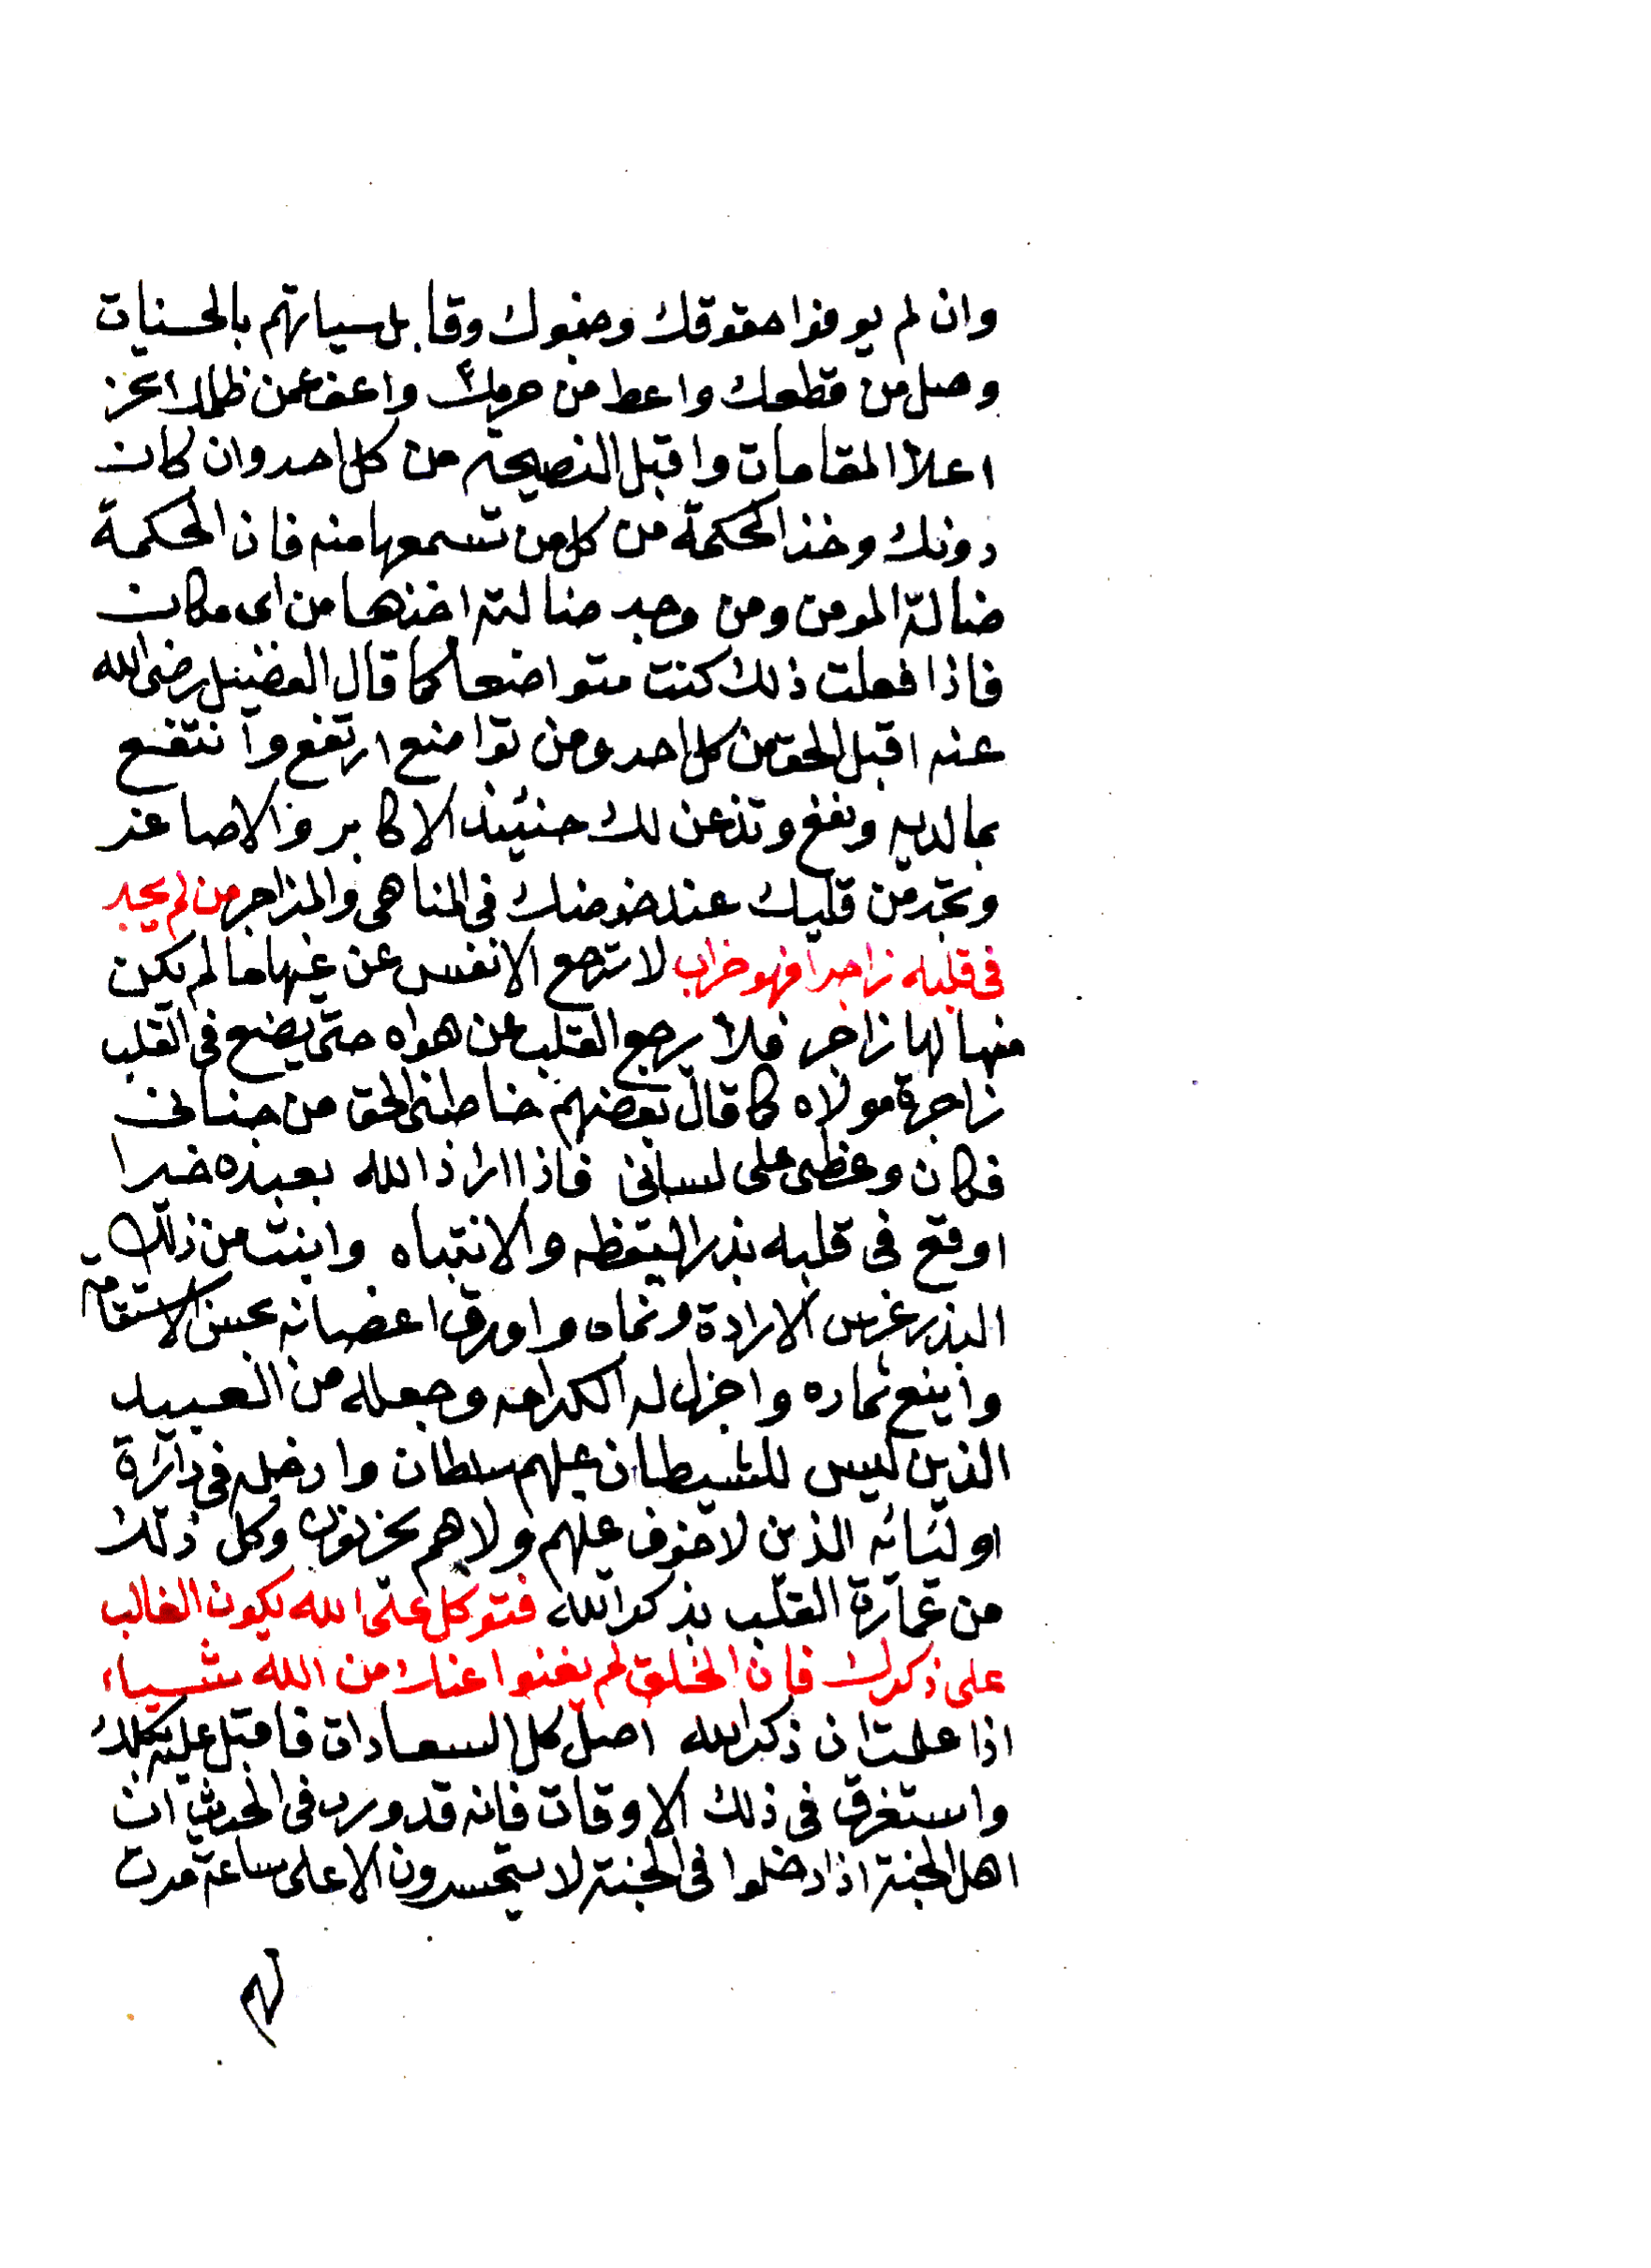 وان لم يوفوا حقوقك وجفوك وقابل سياتهم بالحسنات
وصل من قطعك واعط من حرمك واعف عمن ظلمك تحز
اعلا المقامات واقبل النصيحة من كل احد وان كان
دونك وخذ الحكمة من كل من تسمعها منه فان الحكمة
ضالة المومن ومن وجد ضالته اخذها من اى مكان
فاذا فعلت ذلك كنت متواضعا كما قال الفضيل رضى الله
عنه اقبل الحق من كل احد ومن تواضع ارتفع وانتفع
بما لديه ونفع وتذعن لك حنيئذ الاكابر والاصاغر
وتجد من قلبك عند خوضك فى المناهى والمزاجر من لم يجد
فى قلبه زاجرا فهو خراب لا ترجع الانفس عن غيها ما لم يكن
منها لها زاجر فلا يرجع القلب عن هواه حتى يضع فى القلب
زاجرة مولاه كما قال بعضهم خاطبنى الحق من جنانى
فكان وعظى على لسانى فاذا اراد الله بعبده خيرا
اوقع فى قلبه بذر اليقظه والانتباه وانبت من ذلك
البذر غرس الارادة ونماه واورق اغصانه بحسن الاستقامة
واينع ثماره واجزل له الكرامه وجعله من العبيد
الذين ليس للشيطان عليهم سلطان وادخله فى دائرة
اوليائه الذين لا خوف عليهم ولا هم يحزنون وكل ذلك
من عمارة القلب بذكر الله فتوكل على الله يكون الغالب
على ذكرك فان الخلق لم يغنوا عنك من الله شياء
اذا علمت ان ذكر الله اصل كل السعادات فاقبل عليه بكلك
واستغرق فى ذلك الاوقات فانه قد ورد فى الحديث ان
اهل الجنة اذا دخلوا فى الجنة لا يتحسرون الا على ساعة مرت